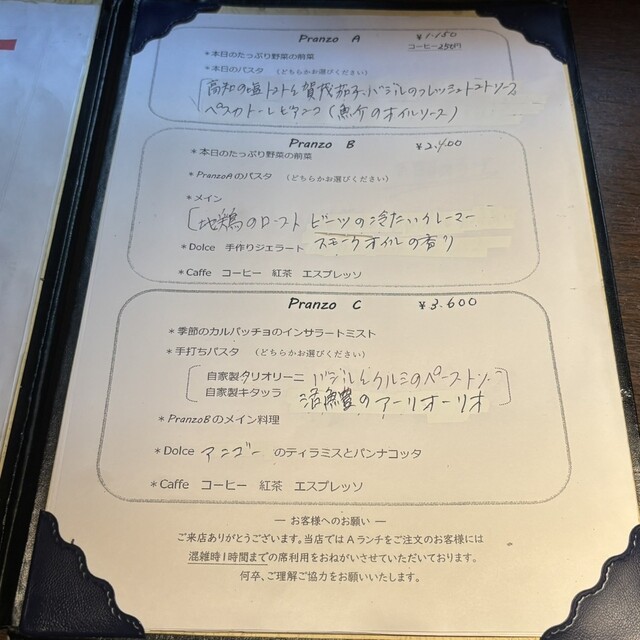 Pranzo A ￥1.150
コーヒー250円
＊本日のたっぷり野菜の前菜
＊本日のパスタ （どちらかお選びください）
高知の塩トマトと賀茂茄子、バジルのフレッシュトマトソース
ペスカトーレビアンコ（魚介のオイルソース）
Pranzo B ￥2.400
＊本日のたっぷり野菜の前菜
＊PranzoAのパスタ （どちらかお選びください）
＊メイン
地鶏のロースト ビーツの冷たいクレーマー
スモークオイルの香り
＊Dolce 手作りジェラート
＊Caffe コーヒー 紅茶 エスプレッソ
Pranzo C ￥3.600
＊季節のカルパッチョのインサラートミスト
＊手打ちパスタ （どちらかお選びください）
自家製タリオリーニ バジルとクルミのペースト
自家製キタッラ のアーリオーリオ
＊PranzoBのメイン料理
＊Dolce マンゴー のティラミスとパンナコッタ
＊Caffe コーヒー 紅茶 エスプレッソ
― お客様へのお願い ―
ご来店ありがとうございます。当店では A ランチをご注文のお客様には
混雑時1時間までの席利用をおねがいさせていただいております。
何卒、ご理解ご協力をお願いいたします。